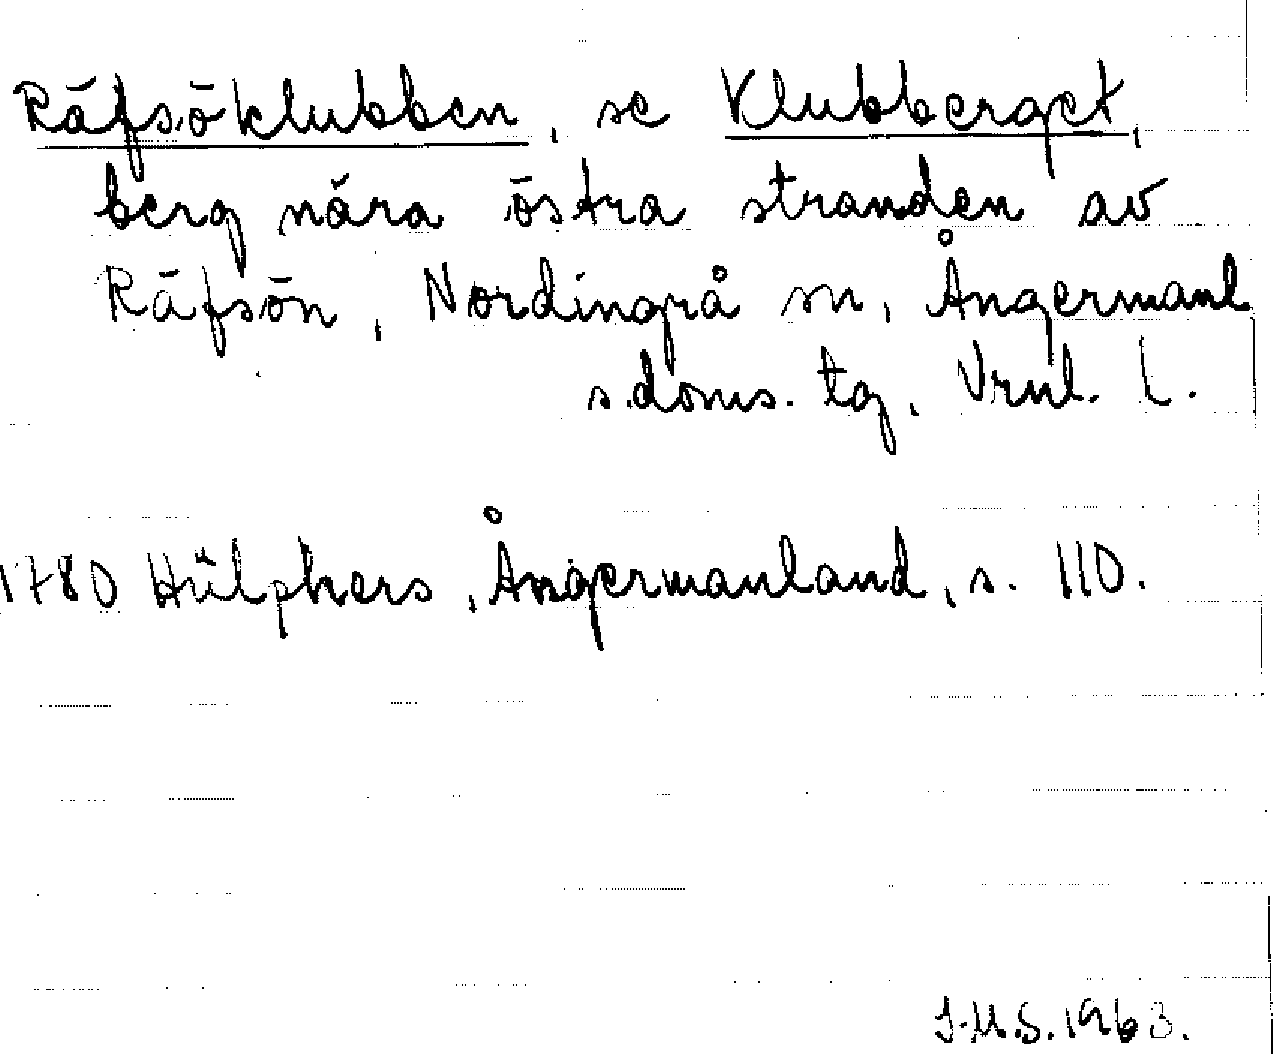 Räfsöklubben, se Klubberget,
berg nära östra stranden av
Räfsön, Nordingrå sn, Ångermanl.
s.doms. tg, Vrnl. l.
1780 Hülphers, Ångermanland, s. 110.
J.M.S.1963.